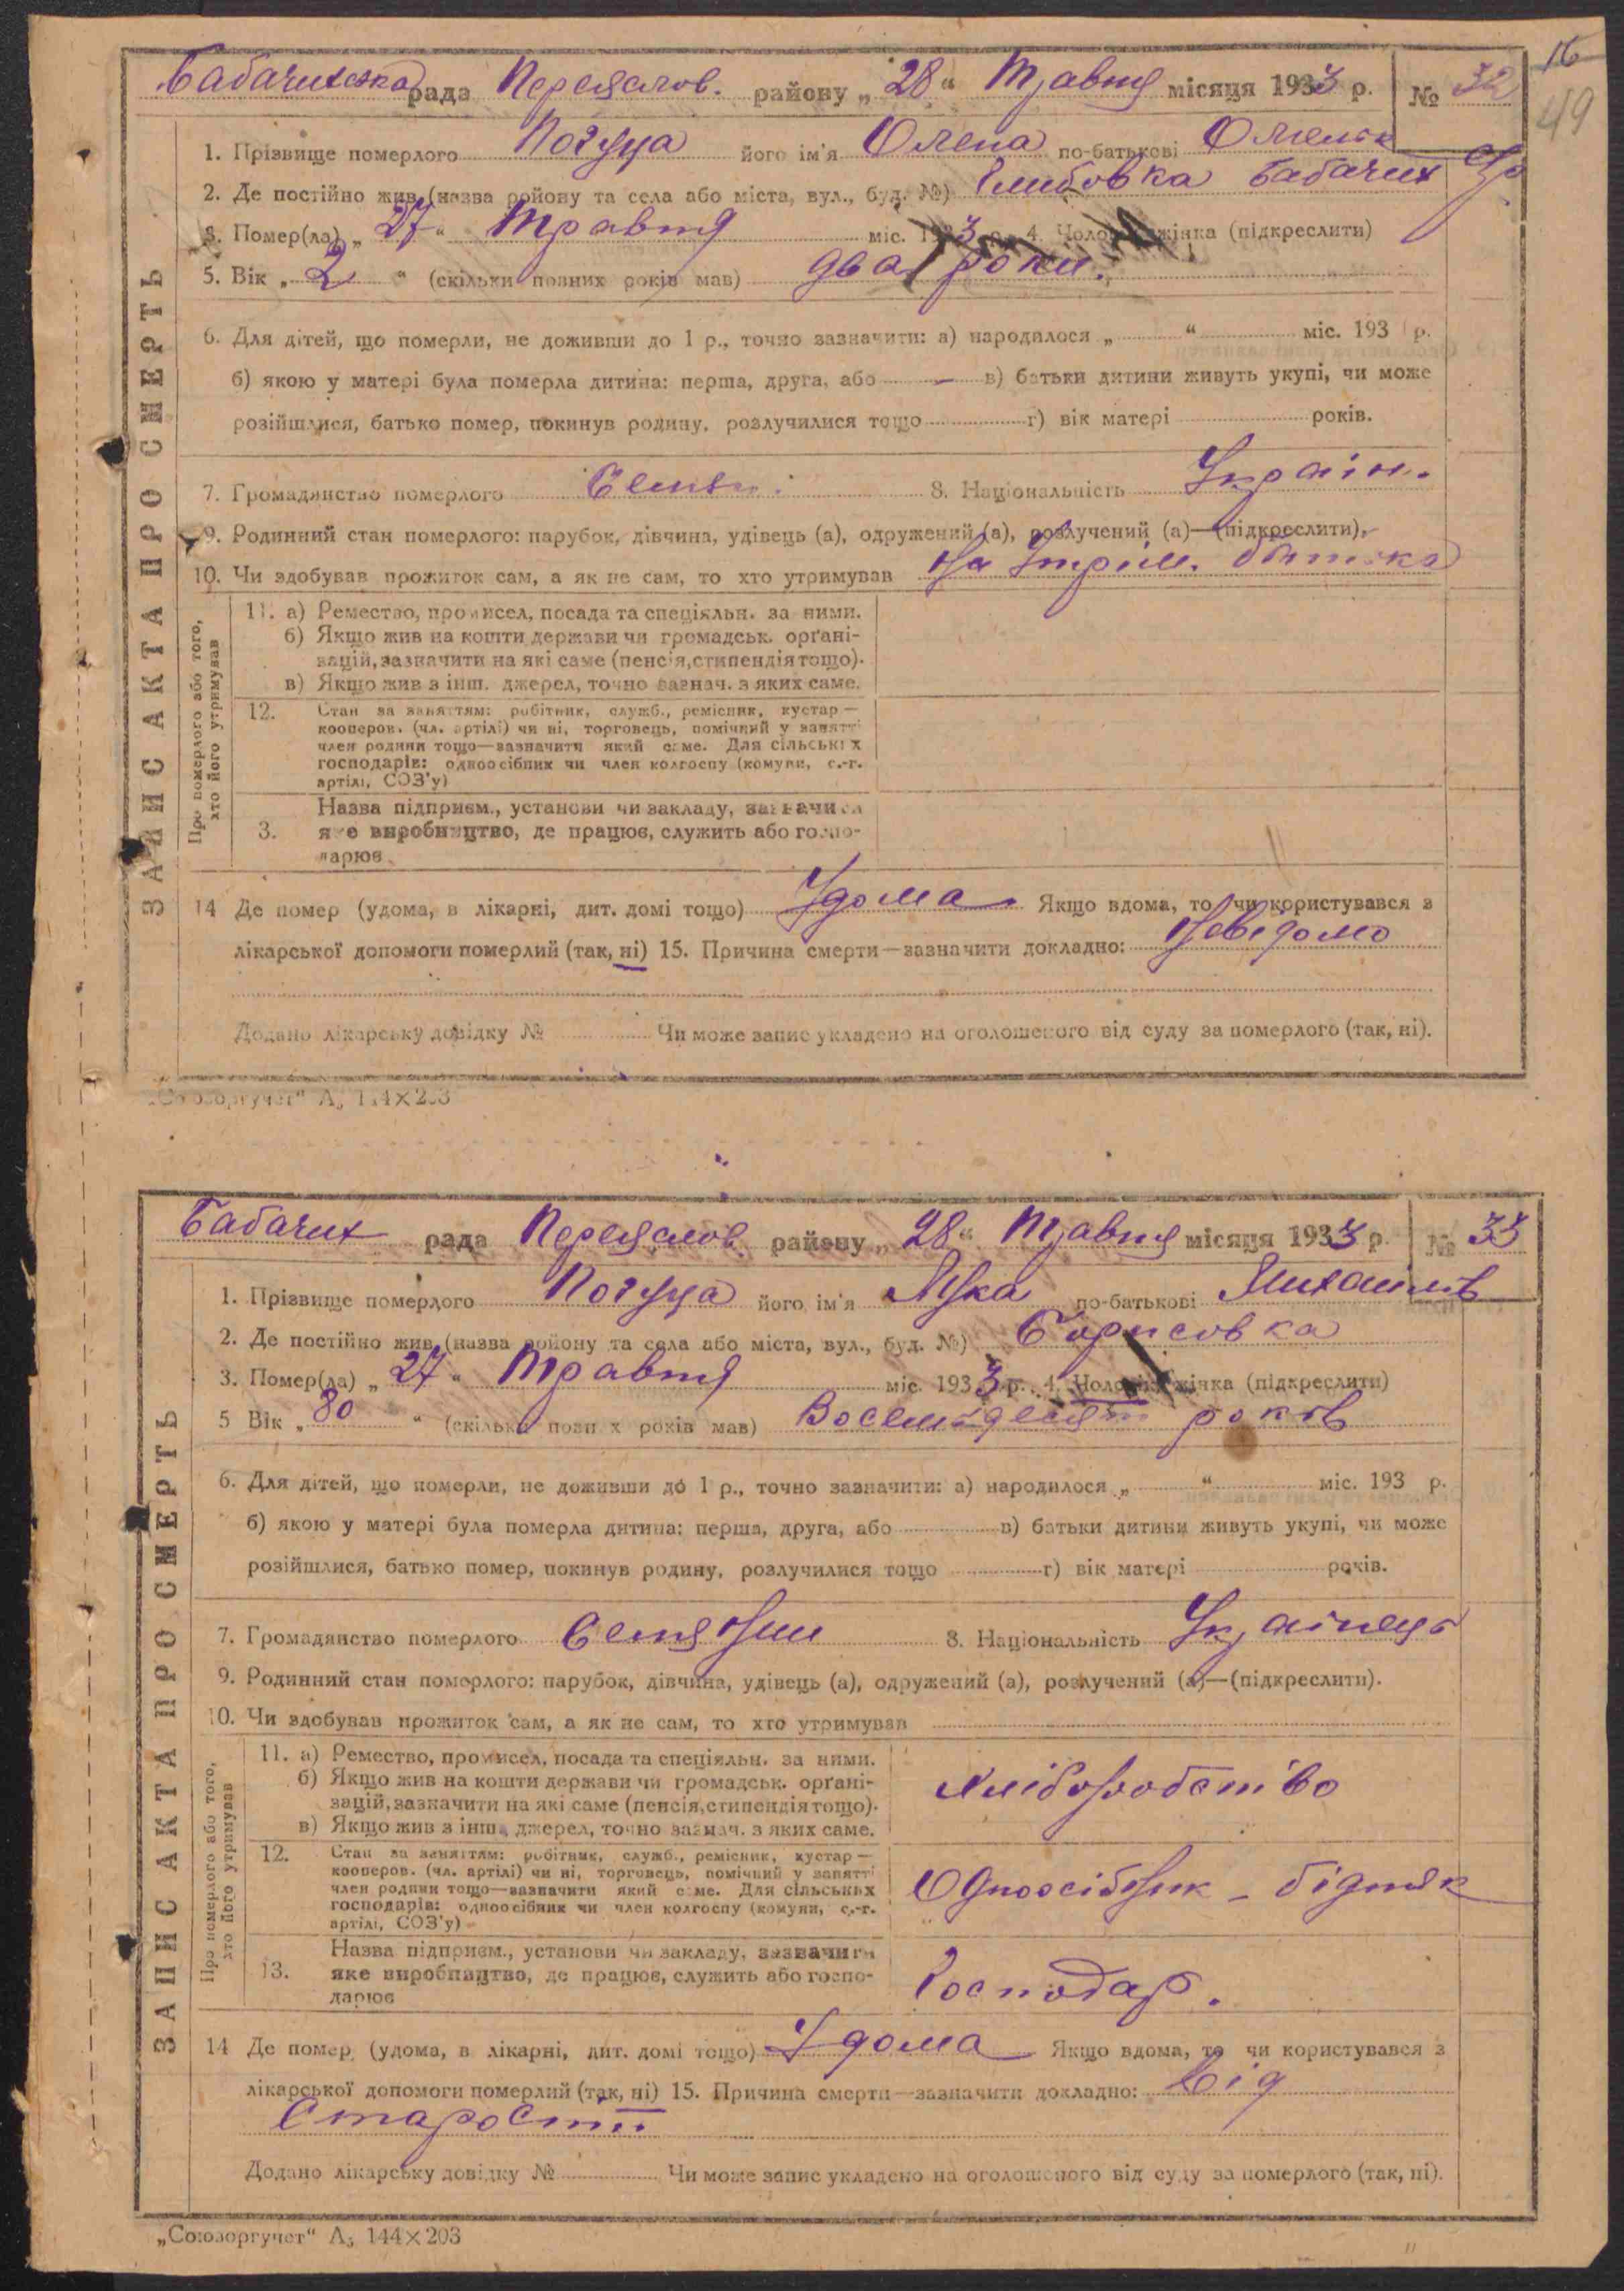 16
49
Бабачихська рада Переяслов. району „28“ Травня місяця 1933 р. № 32
1. Прізвище померлого Погуца його ім'я Олена по-батькові
2. Де постійно жив (назва району та села або міста, вул., буд. №) Бабачих
3. Помер(ла) „27“ Травня міс. 1933 р. 4. Чоловік, жінка (підкреслити)
5. Вік „2“ (скільки повних років мав) два роки.
6. Для дітей, що померли, не доживши до 1 р., точно зазначити: а) народилося „ “ міс. 193 р.
б) якою у матері була померла дитина: перша, друга, або — в) батьки дитини живуть укупі, чи може
розійшлися, батько помер, покинув родину, розлучилися тощо г) вік матері років.
7. Громадянство померлого 8. Національність Україн.
9. Родинний стан померлого: парубок, дівчина, удівець (а), одружений (а), розлучений (а)—(підкреслити).
10. Чи здобував прожиток сам, а як не сам, то хто утримував На утрим. батька
ЗАПИС АКТА ПРО СМЕРТЬ
Про померлого або того,
хто його утримував
11. а) Ремество, промисел, посада та спеціяльн. за ними.
б) Якщо жив на кошти держави чи громадськ. орґані-
зацій, зазначити на які саме (пенсія, стипендія тощо).
в) Якщо жив з інш. джерел, точно зазнач. з яких саме.
12. Стан за заняттям: робітник, служб., ремісник, кустар —
кооперов. (чл. артілі) чи ні, торговець, помічний у занятті
член родини тощо—зазначити який саме. Для сільських
господарів: одноосібник чи член колгоспу (комуни, с.-г.
артілі, СОЗ'у)
Назва підприєм., установи чи закладу, зазначити
3. яке виробництво, де працює, служить або госпо-
дарює
14 Де помер (удома, в лікарні, дит. домі тощо) Удома Якщо вдома, то чи користувався з
лікарської допомоги померлий (так, ні) 15. Причина смерти—зазначити докладно: Невідомо
Додано лікарську довідку № Чи може запис укладено на оголошеного від суду за померлого (так, ні).
„Союзоргучет“ А₅ 144×203
Бабачих рада Переяслов. району „28“ Травня місяця 1933 р. № 33
1. Прізвище померлого Погуца його ім'я Лука по-батькові Михаилів
2. Де постійно жив (назва району та села або міста, вул., буд. №) Борисовка
3. Помер(ла) „27“ Травня міс. 1933 р. 4. Чоловік, жінка (підкреслити)
5 Вік „80“ (скільки повних років мав) Восемдесят років
6. Для дітей, що померли, не доживши до 1 р., точно зазначити: а) народилося „ “ міс. 193 р.
б) якою у матері була померла дитина: перша, друга, або в) батьки дитини живуть укупі, чи може
розійшлися, батько помер, покинув родину, розлучилися тощо г) вік матері років.
7. Громадянство померлого Селянин 8. Національність Українець
9. Родинний стан померлого: парубок, дівчина, удівець (а), одружений (а), розлучений (а)—(підкреслити).
10. Чи здобував прожиток сам, а як не сам, то хто утримував
ЗАПИС АКТА ПРО СМЕРТЬ
Про померлого або того,
хто його утримував
11. а) Ремество, промисел, посада та спеціяльн. за ними.
б) Якщо жив на кошти держави чи громадськ. орґані-
зацій, зазначити на які саме (пенсія, стипендія тощо).
в) Якщо жив з інш. джерел, точно зазнач. з яких саме.
Хліборобство
12. Стан за заняттям: робітник, служб., ремісник, кустар —
кооперов. (чл. артілі) чи ні, торговець, помічний у занятті
член родини тощо—зазначити який саме. Для сільських
господарів: одноосібник чи член колгоспу (комуни, с.-г.
артілі, СОЗ'у)
Одноосібник - бідняк
Назва підприєм., установи чи закладу, зазначити
13. яке виробництво, де працює, служить або госпо-
дарює
Господар.
14 Де помер (удома, в лікарні, дит. домі тощо) Удома Якщо вдома, то чи користувався з
лікарської допомоги померлий (так, ні) 15. Причина смерти—зазначити докладно: Від
Старости
Додано лікарську довідку № Чи може запис укладено на оголошеного від суду за померлого (так, ні).
„Союзоргучет“ А₅ 144×203